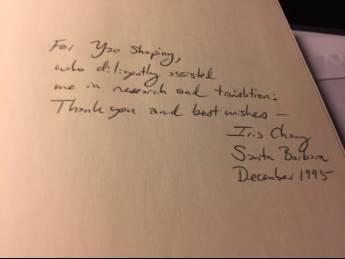 For Yao Shuping,
who diligently assisted
me in research and translation:
Thank you and best wishes —
Iris Chang
Santa Barbara
December 1995